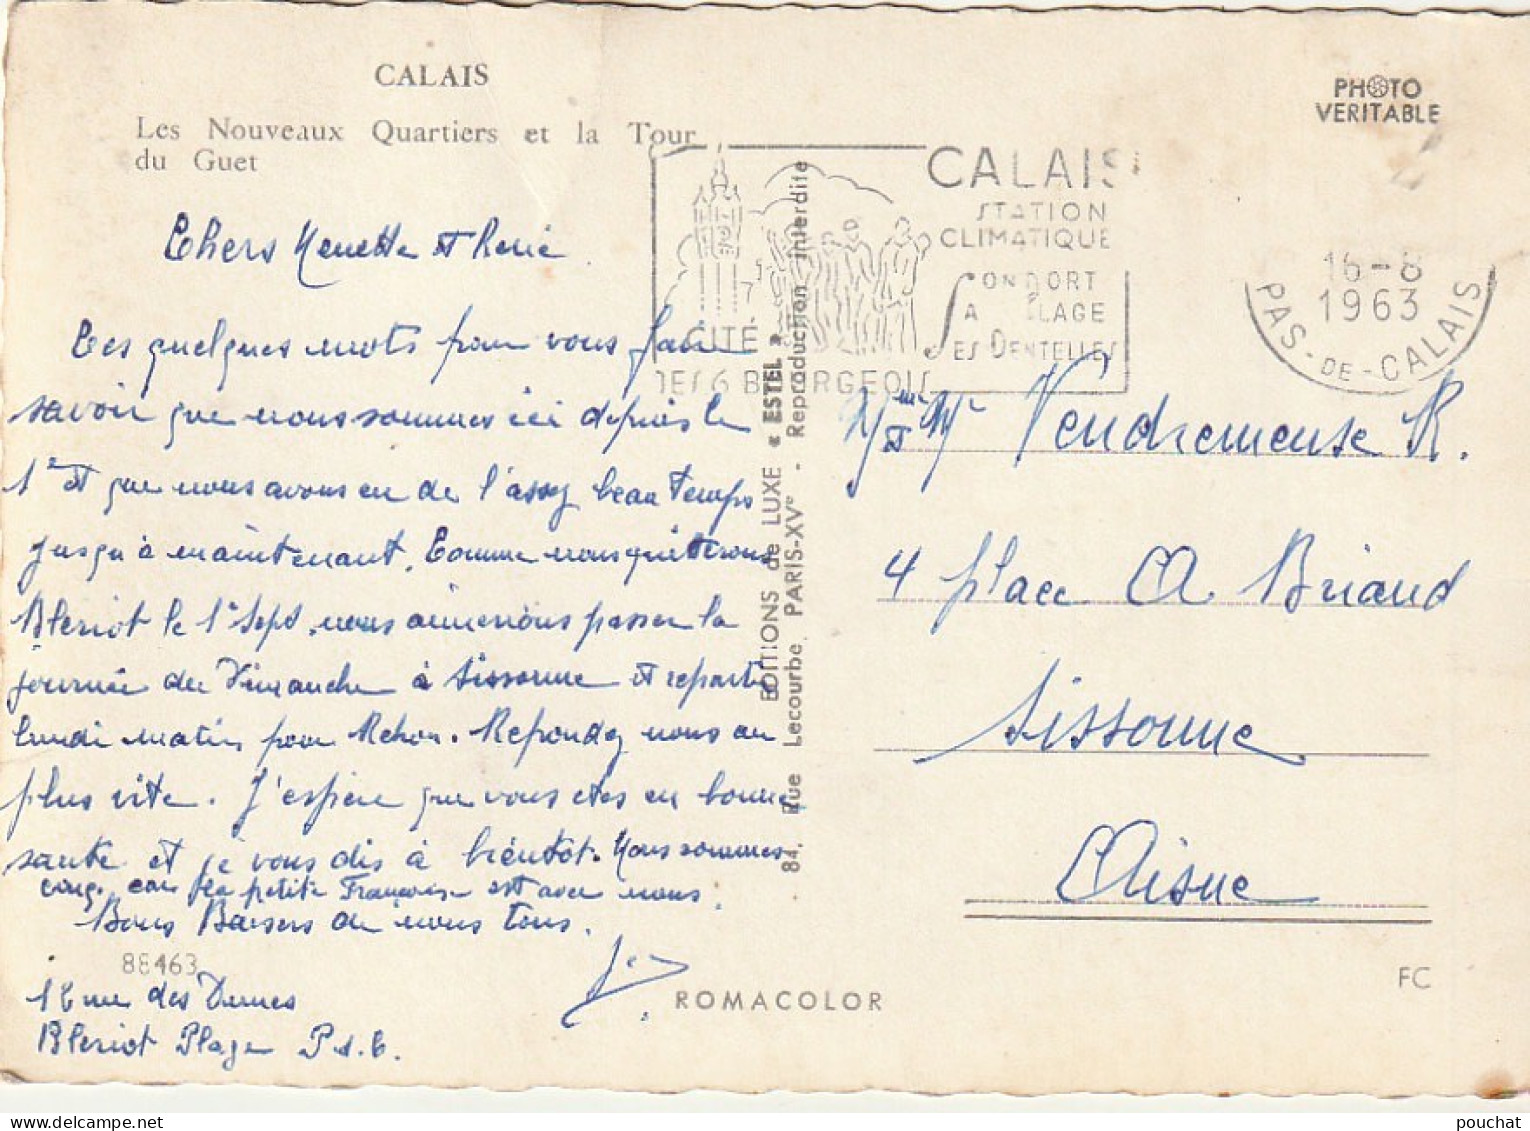 CALAIS
Les Nouveaux Quartiers et la Tour
du Guet
PHOTO
VERITABLE
CALAIS
STATION
CLIMATIQUE
SON PORT
SA PLAGE
SES DENTELLES
CITÉ
DES 6 BOURGEOIS
16-8
1963
PAS-DE-CALAIS
Chers Nenette et René
Ces quelques mots pour vous faire
savoir que nous sommes ici depuis le
1er et que nous avons eu de l'assez beau temps
jusqu'à maintenant. Comme nous quitterons
Bleriot le 1er Sept. nous aimerions passer la
journée du Dimanche à Sissonne et repartir
lundi matin pour Rehon. Repondez nous au
plus vite. J'espère que vous etes en bonne
santé et je vous dis à bientôt. Nous sommes
cinq. car la petite Françoise est avec nous.
Bons Baisers de nous tous.
88463
rue des Dunes
Bleriot Plage P.d.C.
EDITIONS de LUXE « ESTEL »
84, Rue Lecourbe, PARIS-XVe - Reproduction interdite
Mme et Mr Vendremeuse R.
4 place A Briand
Sissonne
Aisne
ROMACOLOR
FC
pouchat